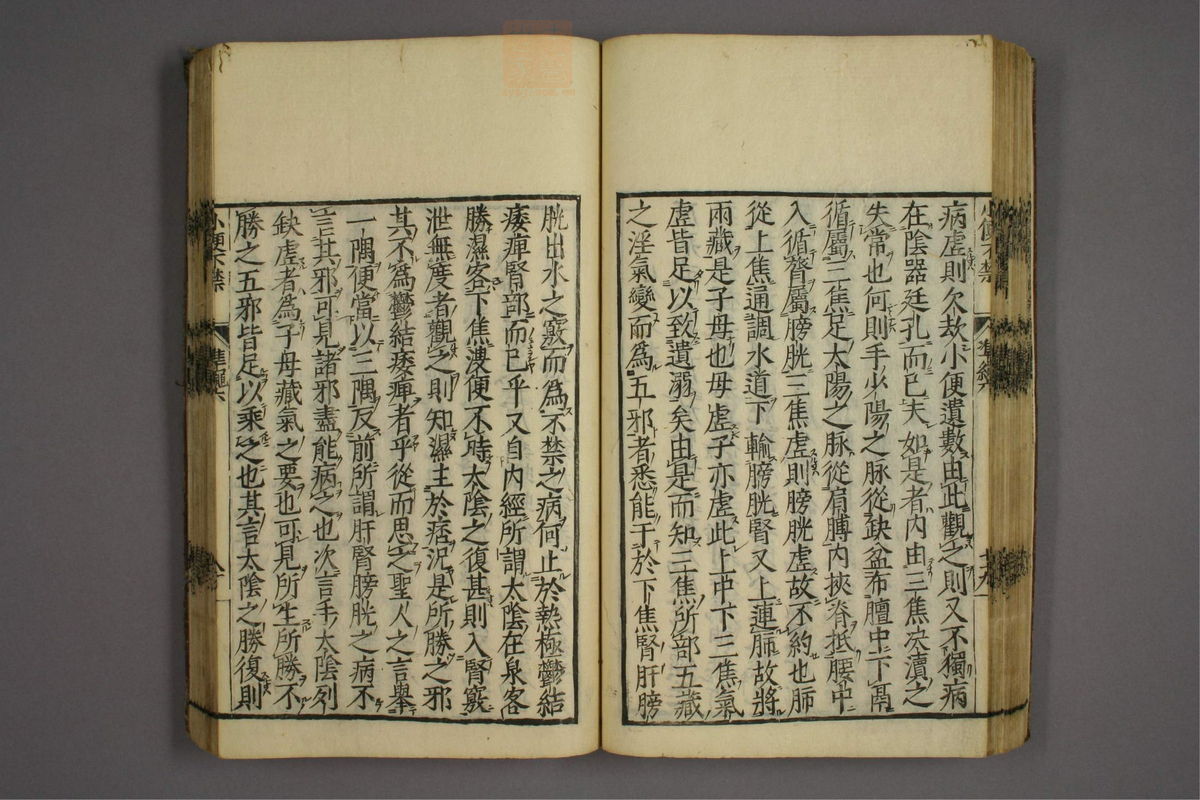 病虛則欠欬小便遺數由此觀之則又不獨病
在陰器廷孔而已夫如是者內由三焦决瀆之
失常也何則手少陽之脉從缺盆布膻中下鬲
循屬三焦足太陽之脉從肩膊內挾脊抵腰中
入循膂屬膀胱三焦虛則膀胱虛故不約也肺
從上焦通調水道下輸膀胱腎又上連肺故將
兩藏是子母也母虛子亦虛此上中下三焦氣
虛皆足以致遺溺矣由是而知三焦所部五藏
之淫氣變而爲五邪者悉能干於下焦腎肝膀
胱出水之竅而爲不禁之病何止於熱極鬱結
痿痺腎部而已乎又自內經所謂太陰在泉客
勝濕客下焦溲便不時太陰之復甚則入腎竅
泄無度者觀之則知濕土於痞況是所勝之邪
其不爲鬱結痿痺者乎從而思之聖人之言舉
一隅便當以三隅反前所謂肝腎膀胱之病不
言其邪可見諸邪盡能病之也次言手太陰列
缺虛者爲子母藏氣之要也可見所生所勝不
勝之五邪皆足以乘之也其言太陰之勝復則
小便不禁
準繩六